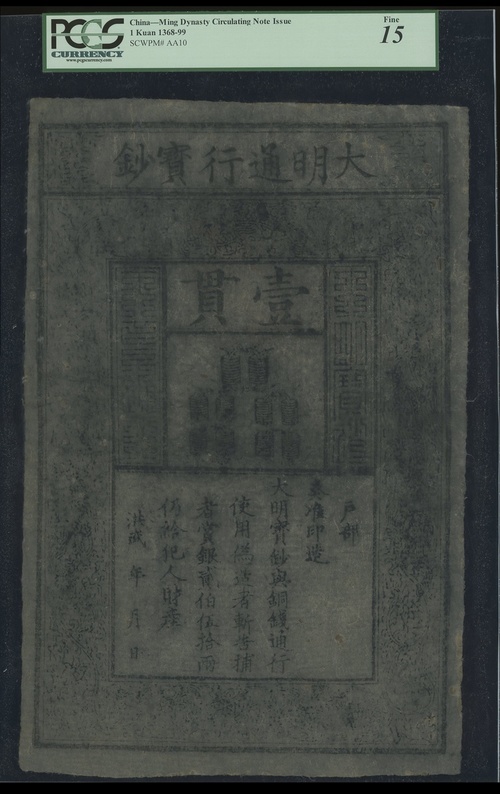 PCGS
CURRENCY
www.pcgscurrency.com
China—Ming Dynasty Circulating Note Issue
1 Kuan 1368-99
SCWPM# AA10
Fine
15
大明通行寶鈔
壹貫
戶部
奏准印造
大明寶鈔與銅錢通行
使用偽造者斬告捕
者賞銀貳伯伍拾兩
仍給犯人財產
洪武 年 月 日